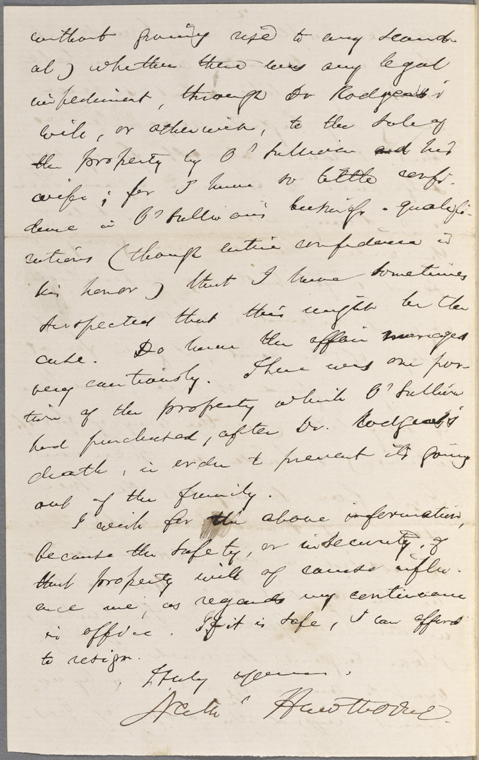 without giving rise to any scand-
al) whether there was any legal
impediment, through Dr Rodgers's
will, or otherwise, to the sale of
the property by O'Sullivan and his
wife; for I have so little confi-
dence in O'Sullivan's business-qualifi-
cations (though entire confidence in
his honor) that I have sometimes
suspected that this might be the
case. Do have the affair managed
very cautiously. There was one por-
tion of the property which O'Sullivan
had purchased, after Dr. Rodgers's
death, in order to prevent its going
out of the family.
I wish for the above information,
because the safety, or insecurity, of
that property will of course influ-
ence me, as regards my continuance
in office. If it is safe, I can afford
to resign.
Truly yours,
Nath' Hawthorne.